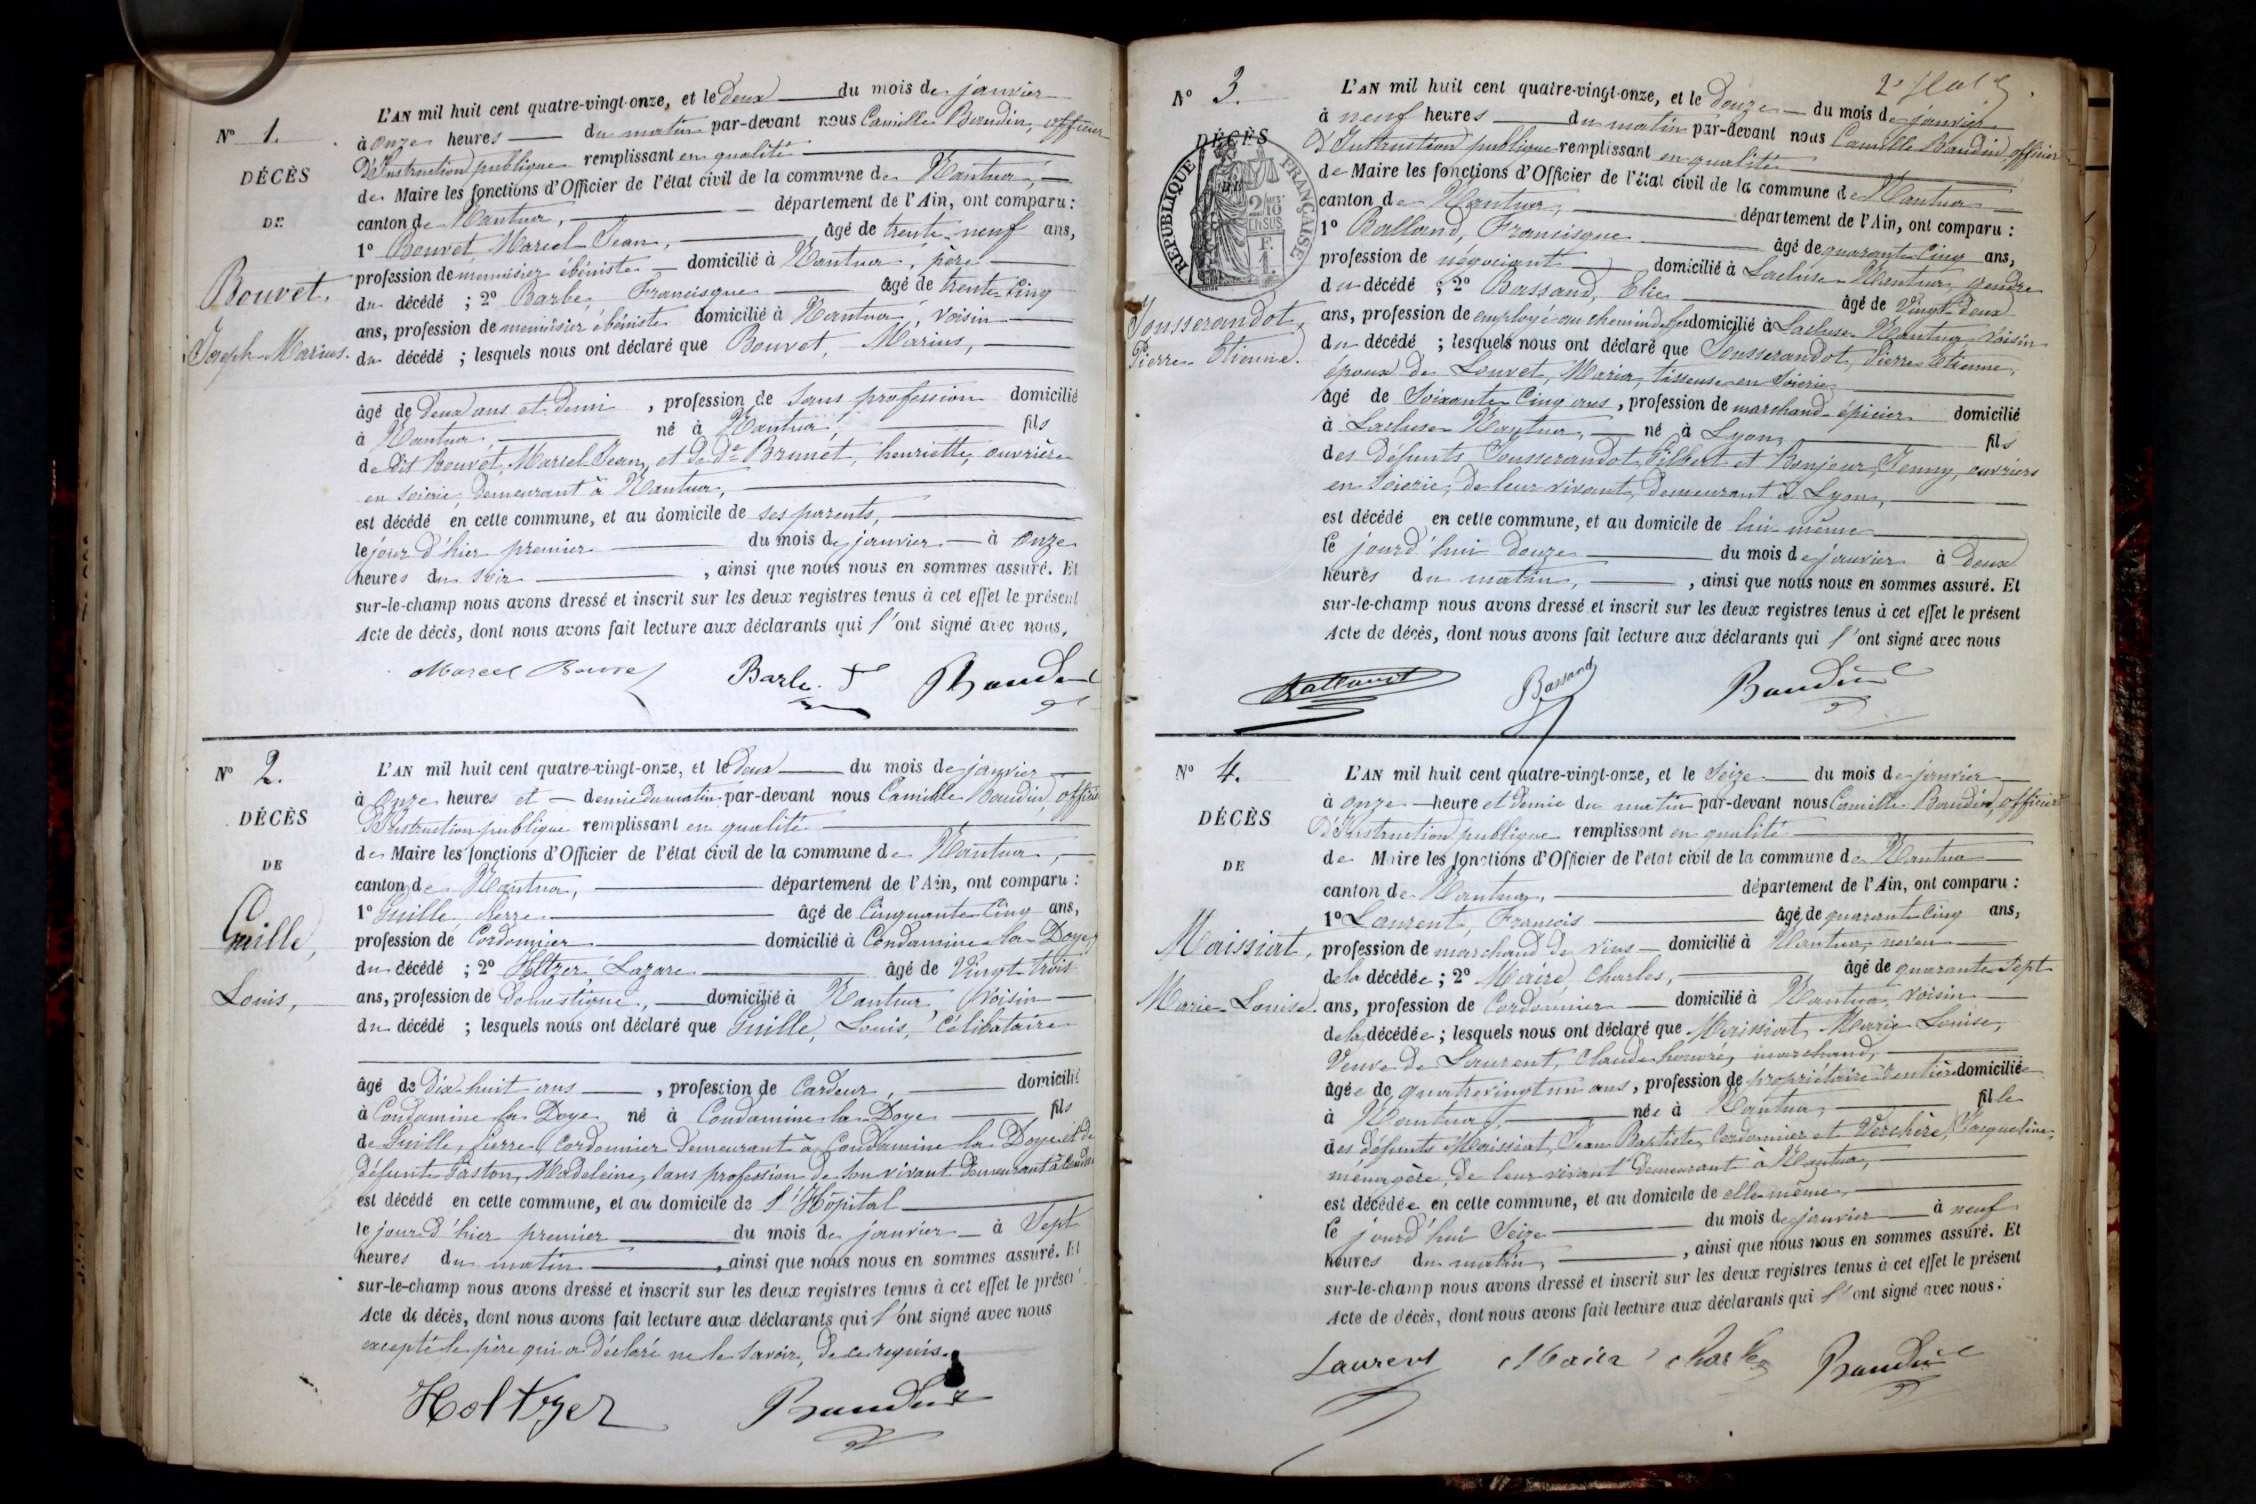 N° 1.
DÉCÈS
DE
Bouvet.
Joseph Marius.
L'AN mil huit cent quatre-vingt-onze, et le deux du mois de janvier
à onze heures du matin par-devant nous Camille Baudin, officier
d'Instruction publique remplissant en qualité
de Maire les fonctions d'Officier de l'état civil de la commune de Nantua,
canton de Nantua, département de l'Ain, ont comparu :
1° Bouvet, Marcel Jean, âgé de trente-neuf ans,
profession de menuisier ébéniste domicilié à Nantua, père
du décédé ; 2° Barbe, Francisque âgé de trente cinq
ans, profession de menuisier ébéniste domicilié à Nantua, voisin
du décédé ; lesquels nous ont déclaré que Bouvet, Marius,
âgé de deux ans et demi , profession de sans profession domicilié
à Nantua, né à Nantua, fils
de dit Bouvet, Marcel Jean, et de de Brunet, henriette, ouvrière
en soierie, demeurant à Nantua,
est décédé en cette commune, et au domicile de ses parents,
le jour d'hier premier du mois de janvier à onze
heures du soir , ainsi que nous nous en sommes assuré. Et
sur-le-champ nous avons dressé et inscrit sur les deux registres tenus à cet effet le présent
Acte de décès, dont nous avons fait lecture aux déclarants qui l'ont signé avec nous.
Marcel Bouvet Barbe F Baudin
N° 2.
DÉCÈS
DE
Guille,
Louis,
L'AN mil huit cent quatre-vingt-onze, et le deux du mois de janvier
à onze heures et demie du matin par-devant nous Camille Baudin, officier
d'Instruction publique remplissant en qualité
de Maire les fonctions d'Officier de l'état civil de la commune de Nantua,
canton de Nantua, département de l'Ain, ont comparu :
1° Guille, Pierre âgé de Cinquante Cinq ans,
profession de Cordonnier domicilié à Condamine la Doye
du décédé ; 2° Lazare âgé de Vingt trois
ans, profession de domestique, domicilié à Nantua, voisin
du décédé ; lesquels nous ont déclaré que Guille, Louis, Célibataire
âgé de dix huit ans , profession de Cardeur, domicilié
à Condamine la Doye né à Condamine la Doye fils
de Guille, Pierre, Cordonnier demeurant à Condamine la Doye et de
défunte Paston, Madeleine, sans profession de son vivant demeurant à
est décédé en cette commune, et au domicile de l'Hôpital
le jour d'hier premier du mois de janvier à Sept
heures du matin , ainsi que nous nous en sommes assuré. Et
sur-le-champ nous avons dressé et inscrit sur les deux registres tenus à cet effet le présent
Acte de décès, dont nous avons fait lecture aux déclarants qui l'ont signé avec nous
excepté le père qui a déclaré ne le savoir, de ce requis.
Holtzer Baudin
N° 3.
DÉCÈS
RÉPUBLIQUE FRANÇAISE
Jousserandot,
Pierre Etienne.
L'AN mil huit cent quatre-vingt-onze, et le douze du mois de janvier
à neuf heures du matin par-devant nous Camille Baudin, officier
d'Instruction publique remplissant en qualité
de Maire les fonctions d'Officier de l'état civil de la commune de Nantua
canton de Nantua, département de l'Ain, ont comparu :
1° Balland, Francisque âgé de quarante Cinq ans,
profession de négociant domicilié à Lacluse Nantua, gendre
du décédé ; 2° Bassand, Elie âgé de Vingt deux
ans, profession de employé au chemin de fer domicilié à Lacluse Nantua voisin
du décédé ; lesquels nous ont déclaré que Jousserandot, Pierre Etienne,
époux de Louvet, Maria, tisseuse en Soierie
âgé de Soixante Cinq ans, profession de marchand épicier domicilié
à Lacluse Nantua, né à Lyon, fils
des défunts Jousserandot, Gilbert et Bonjour, Jenny, ouvriers
en soierie, de leur vivant, demeurant à Lyon,
est décédé en cette commune, et au domicile de lui même
le jourd'hui douze du mois de janvier à deux
heures du matin, , ainsi que nous nous en sommes assuré. Et
sur-le-champ nous avons dressé et inscrit sur les deux registres tenus à cet effet le présent
Acte de décès, dont nous avons fait lecture aux déclarants qui l'ont signé avec nous
Balland Bassand Baudin
N° 4.
DÉCÈS
DE
Maissiat,
Marie Louise.
L'AN mil huit cent quatre-vingt-onze, et le Seize du mois de janvier
à onze heure et demie du matin par-devant nous Camille Baudin, officier
d'Instruction publique remplissant en qualité
de Maire les fonctions d'Officier de l'état civil de la commune de Nantua
canton de Nantua, département de l'Ain, ont comparu :
1° Laurent, François âgé de quarante Cinq ans,
profession de marchand de vins domicilié à Nantua, neveu
de la décédée ; 2° Maire, Charles, âgé de quarante Sept
ans, profession de Cordonnier domicilié à Nantua, voisin
de la décédée ; lesquels nous ont déclaré que Maissiat, Marie Louise,
Veuve de Laurent, Claude honoré, marchand,
âgée de quatre vingt un ans, profession de propriétaire rentière domiciliée
à Nantua, née à Nantua, fille
des défunts Maissiat, Jean Baptiste, Cordonnier et Verchère, Jacqueline,
ménagère, de leur vivant demeurant à Nantua,
est décédée en cette commune, et au domicile de elle-même,
le jourd'hui Seize du mois de janvier à neuf
heures du matin, , ainsi que nous nous en sommes assuré. Et
sur-le-champ nous avons dressé et inscrit sur les deux registres tenus à cet effet le présent
Acte de décès, dont nous avons fait lecture aux déclarants qui l'ont signé avec nous.
Laurent Maire Charles Baudin